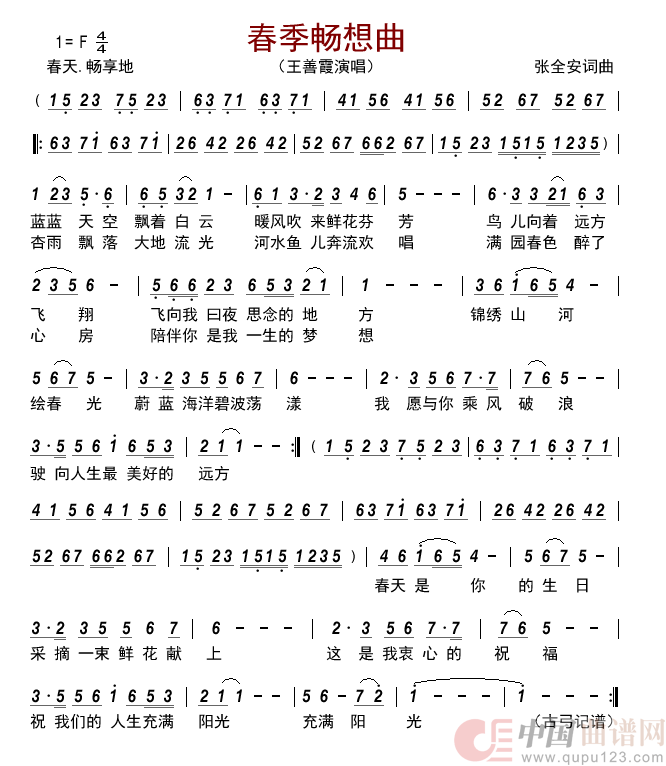 春季畅想曲
1= F 4/4
春天.畅享地 （王善霞演唱） 张全安词曲
( 15 23 75 23 | 63 71 63 71 | 41 56 41 56 | 52 67 52 67 |
|: 63 71 63 71 | 26 42 26 42 | 52 67 662 67 | 15 23 1515 1235 )
1 23 5·6 | 65 32 1 - | 61 3·2 3 46 | 5 - - - | 6·3 3 21 63 |
蓝蓝 天空 飘着 白云 暖风吹 来鲜花芬 芳 鸟 儿向着 远方
杏雨 飘落 大地 流光 河水鱼 儿奔流欢 唱 满 园春色 醉了
2 35 6 - | 566 23 653 21 | 1 - - - | 36 165 4 - |
飞 翔 飞向我 日夜 思念的 地 方 锦绣 山 河
心 房 陪伴你 是我 一生的 梦 想
5 67 5 - | 3·2 35 55 67 | 3 - - - | 2· 35 67·7 | 76 5 - |
绘春 光 蔚 蓝 海洋碧波荡 漾 我 愿与你 乘风 破 浪
3·5 56 1 653 | 2 21 1 - | - - - :| ( 15 23 75 23 | 63 71 63 71 |
驶 向人生最 美好的 远方
41 56 41 56 | 52 67 52 67 | 63 71 63 71 | 26 42 26 42 |
52 67 662 67 | 15 23 1515 1235 ) | 46 165 4 - | 5 67 5 - |
春天 是 你 的 生 日
3·2 35 56 7 | 6 - - - | 2· 35 67·7 | 76 5 - |
采 摘 一束 鲜花 献 上 这 是 我衷 心的 祝 福
3·5 56 1 653 | 2 21 1 - | 56 - 72 | 1 - - - | 1 - - - :|
祝 我们的 人生充满 阳光 充满 阳 光 （古弓记谱）
中国曲谱网
www.qupu123.com